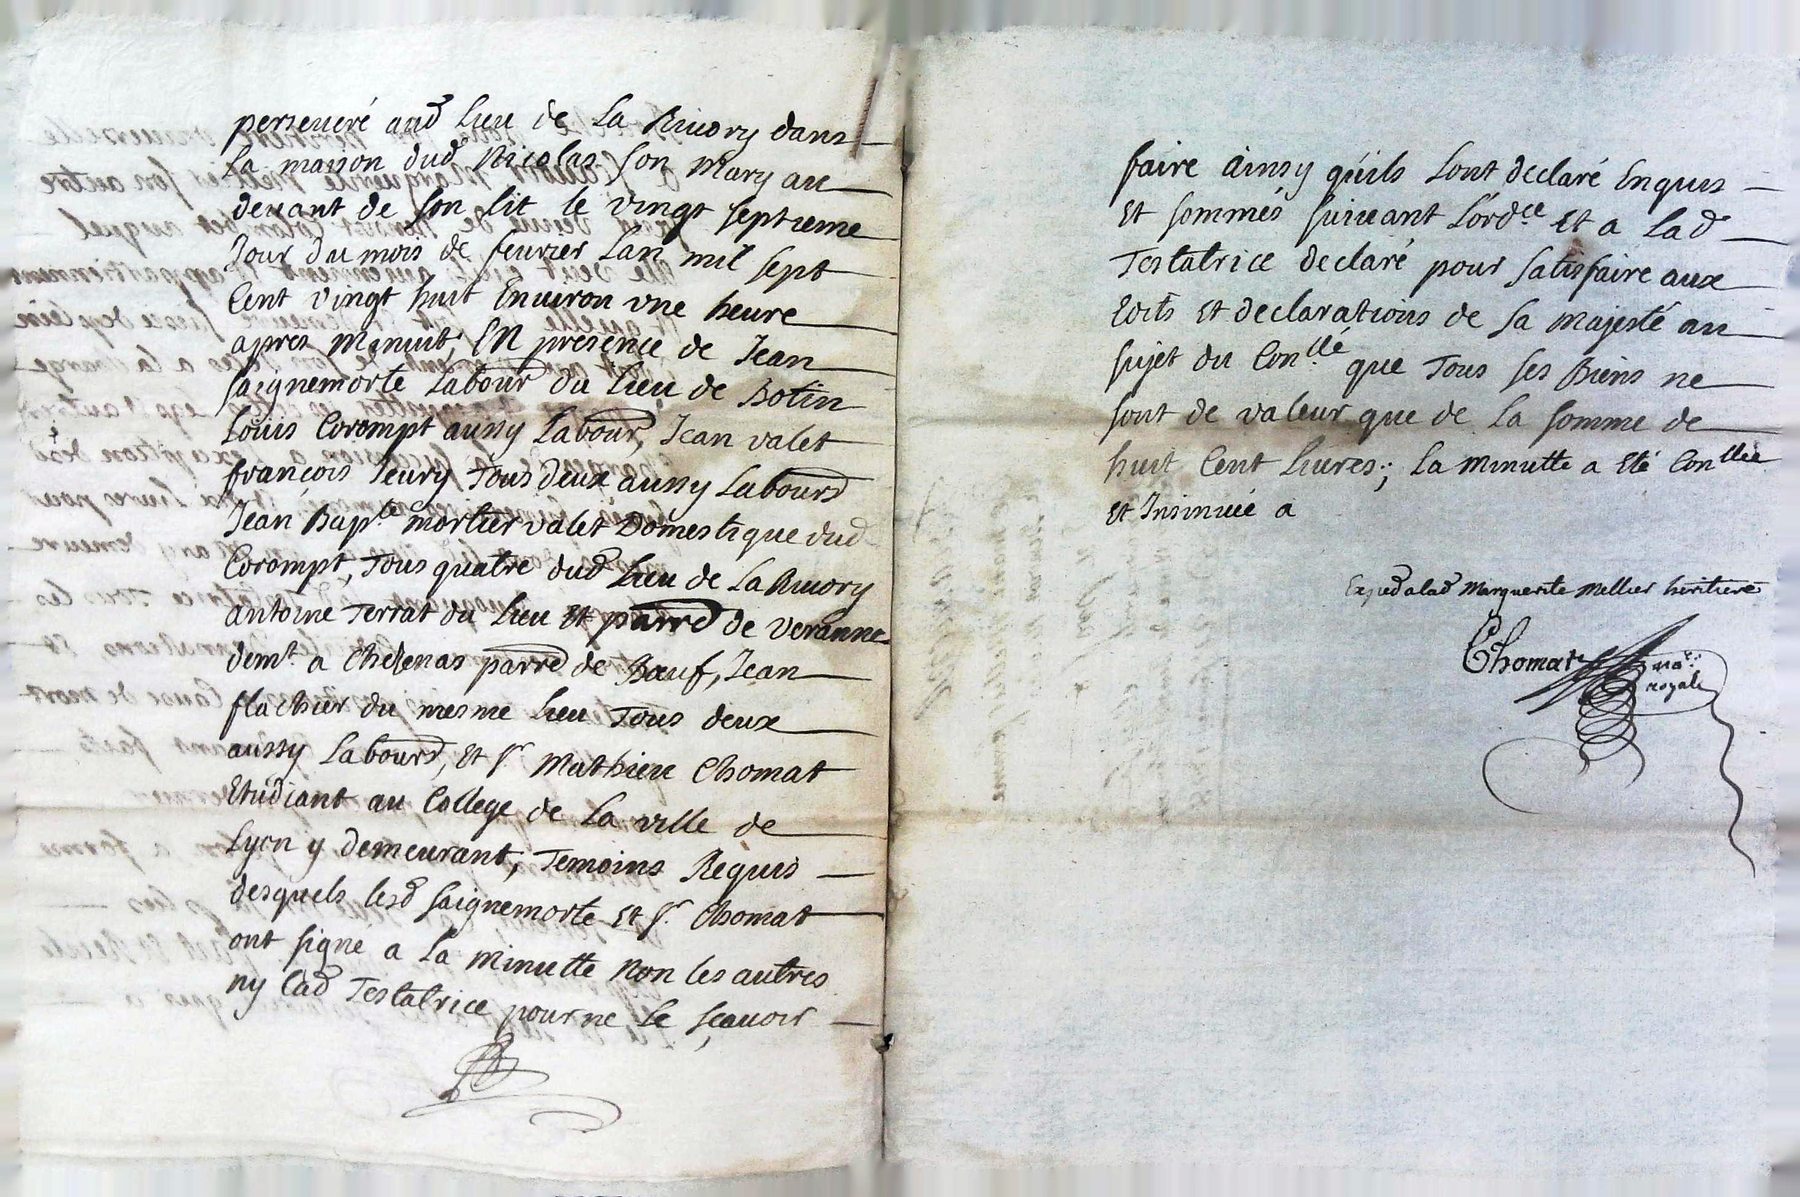 perseveré aud Lieu de La Rivory dans
La maison dud Nicolas son Mary au
devant de son Lit le vingt septieme
Jour du mois de fevrier Lan mil sept
Cent vingt huit Environ vne heure
apres Minuit, En presence de Jean
saignemorte Labour du Lieu de Botin
Louis Corompt aussy Labour, Jean valet
françois Jeury Tous deux aussy Labours
Jean Bap.te mortier valet Domestique dud
Corompt, Tous quatre dud Lieu de La Rivory
antoine Terrat du Lieu Et parre de veranne
demt. a Chelenas parre de Bœuf, Jean
flachier du mesme Lieu Tous deux
aussy Labours, Et Sr Mathieu Chomat
Etudiant au College de La ville de
Lyon y demeurant, Temoins Requis
desquels lesd saignemorte Et Sr. Chomat
ont signé a La Minutte Non les autres
ny Lad Testatrice pour ne le sçavoir
faire ainsy quils sont declaré Enquis
Et sommés suivant L'ord.ce Et a Lad
Testatrice declaré pour satisfaire aux
Edits Et declarations de sa Majesté au
sujet du Con.llé que Tous ses Biens ne
sont de valeur que de La somme de
huit Cent Livres; La Minutte a Eté Con.llée
Et Insinuée a
Exped a lad Marguerite Mellier heritiere
Chomat no.re
royal